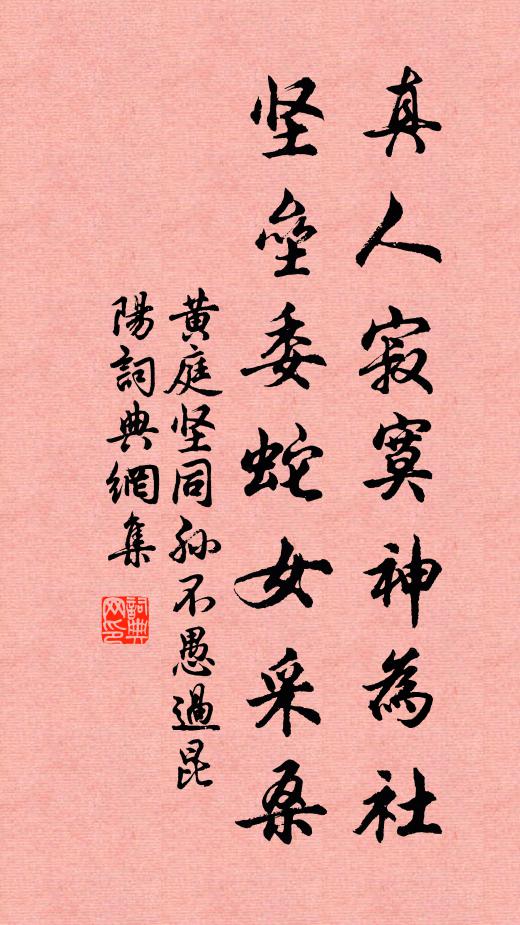 真人寂寞神為社
坚垒委蛇女采桑
黄庭坚同孙不愚過昆
陽詞典網集
詞典
网印